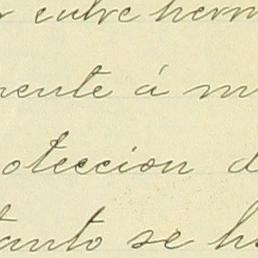 entre herm
mente á m
otección d
tanto se h